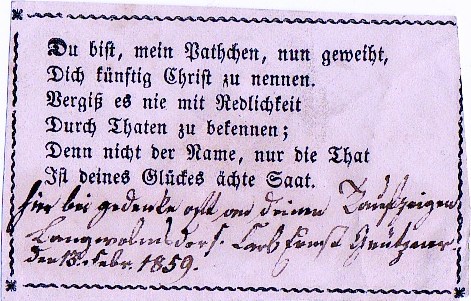 Du bist, mein Pathchen, nun geweiht,
Dich künftig Christ zu nennen.
Vergiß es nie mit Redlichkeit
Durch Thaten zu bekennen;
Denn nicht der Name, nur die That
Ist deines Glückes ächte Saat.
hier bei gedenke oft an deinen Taufzeugen
Langwolmsdorf. Carl Ernst Grützner
den 13. Febr. 1859.